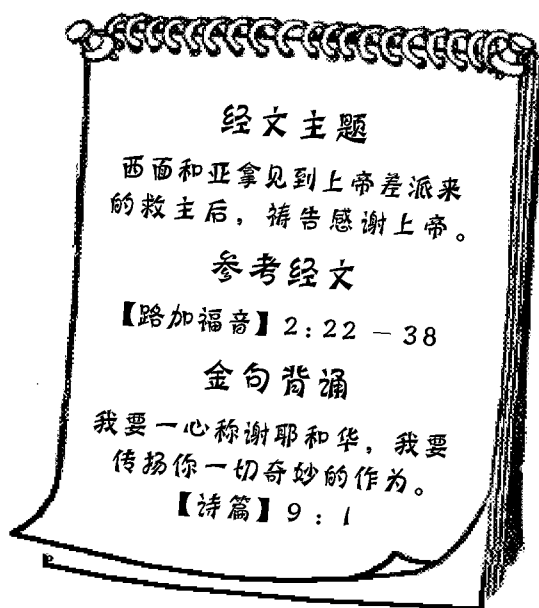 经文主题
西面和亚拿见到上帝差派来
的救主后，祷告感谢上帝。
参考经文
【路加福音】2：22－38
金句背诵
我要一心称谢耶和华，我要
传扬你一切奇妙的作为。
【诗篇】9：1